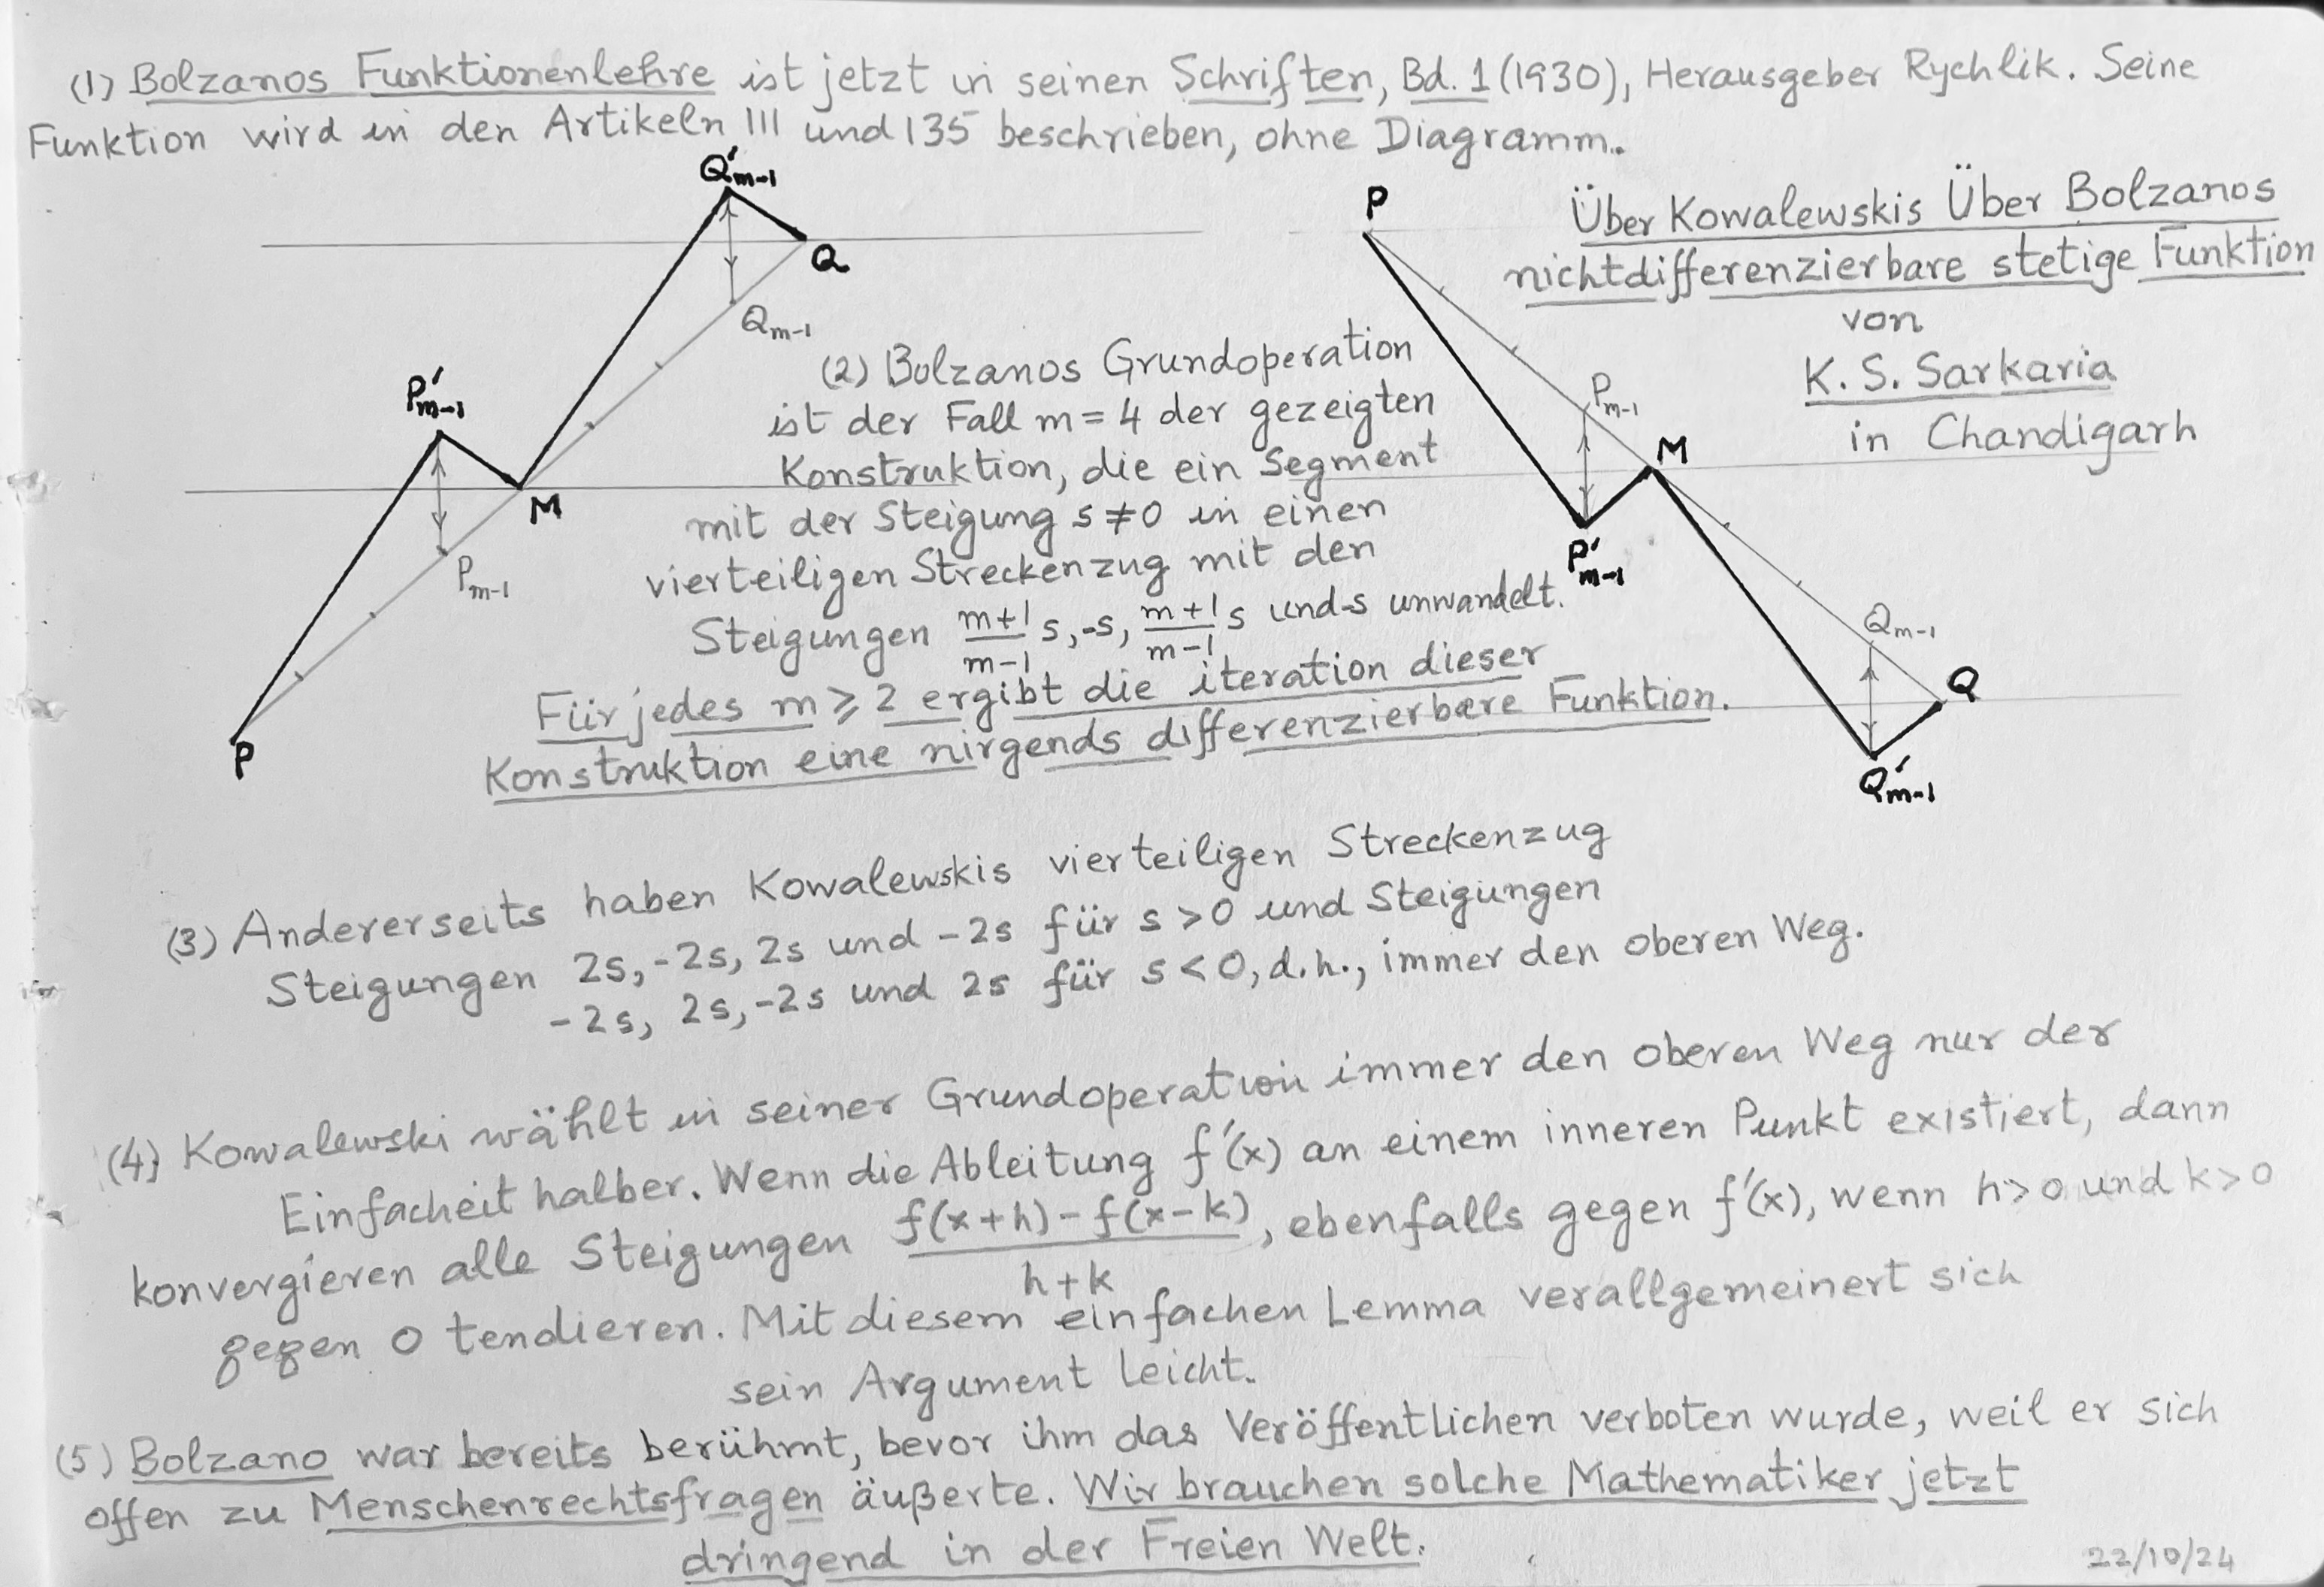 (1) Bolzanos Funktionenlehre ist jetzt in seinen Schriften, Bd. 1 (1930), Herausgeber Rychlik. Seine
Funktion wird in den Artikeln 111 und 135 beschrieben, ohne Diagramm.
Über Kowalewskis Über Bolzanos
nichtdifferenzierbare stetige Funktion
von
K. S. Sarkaria
in Chandigarh
Q'm-1
Q
Qm-1
P'm-1
M
Pm-1
P
P
Pm-1
M
P'm-1
Qm-1
Q
Q'm-1
(2) Bolzanos Grundoperation
ist der Fall m = 4 der gezeigten
Konstruktion, die ein Segment
mit der Steigung s ≠ 0 in einen
vierteiligen Streckenzug mit den
Steigungen (m+1)/(m-1) s, -s, (m+1)/(m-1) s und -s unwandelt.
Für jedes m ⩾ 2 ergibt die iteration dieser
Konstruktion eine nirgends differenzierbare Funktion.
(3) Andererseits haben Kowalewskis vierteiligen Streckenzug
Steigungen 2s, -2s, 2s und -2s für s > 0 und Steigungen
-2s, 2s, -2s und 2s für s < 0, d.h., immer den oberen Weg.
(4) Kowalewski wählt in seiner Grundoperation immer den oberen Weg nur der
Einfacheit halber. Wenn die Ableitung f'(x) an einem inneren Punkt existiert, dann
konvergieren alle Steigungen (f(x+h) - f(x-k))/(h+k), ebenfalls gegen f'(x), wenn h>0 und k>0
gegen 0 tendieren. Mit diesem einfachen Lemma verallgemeinert sich
sein Argument leicht.
(5) Bolzano war bereits berühmt, bevor ihm das Veröffentlichen verboten wurde, weil er sich
offen zu Menschenrechtsfragen äußerte. Wir brauchen solche Mathematiker jetzt
dringend in der Freien Welt.
22/10/24